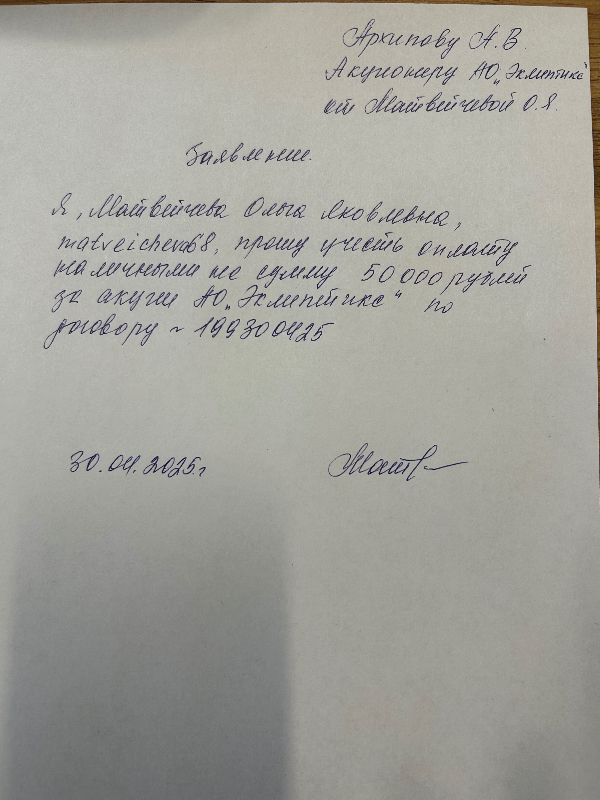 Архипову А.В.
Акционеру АО „Эклиптика“
от Матвейчевой О.Я.
Заявление.
Я, Матвейчева Ольга Яковлевна,
matveicheva68, прошу учесть оплату
наличными на сумму 50 000 рублей
за акции АО „Эклиптика“ по
договору ~ 199300425
30.04.2025г